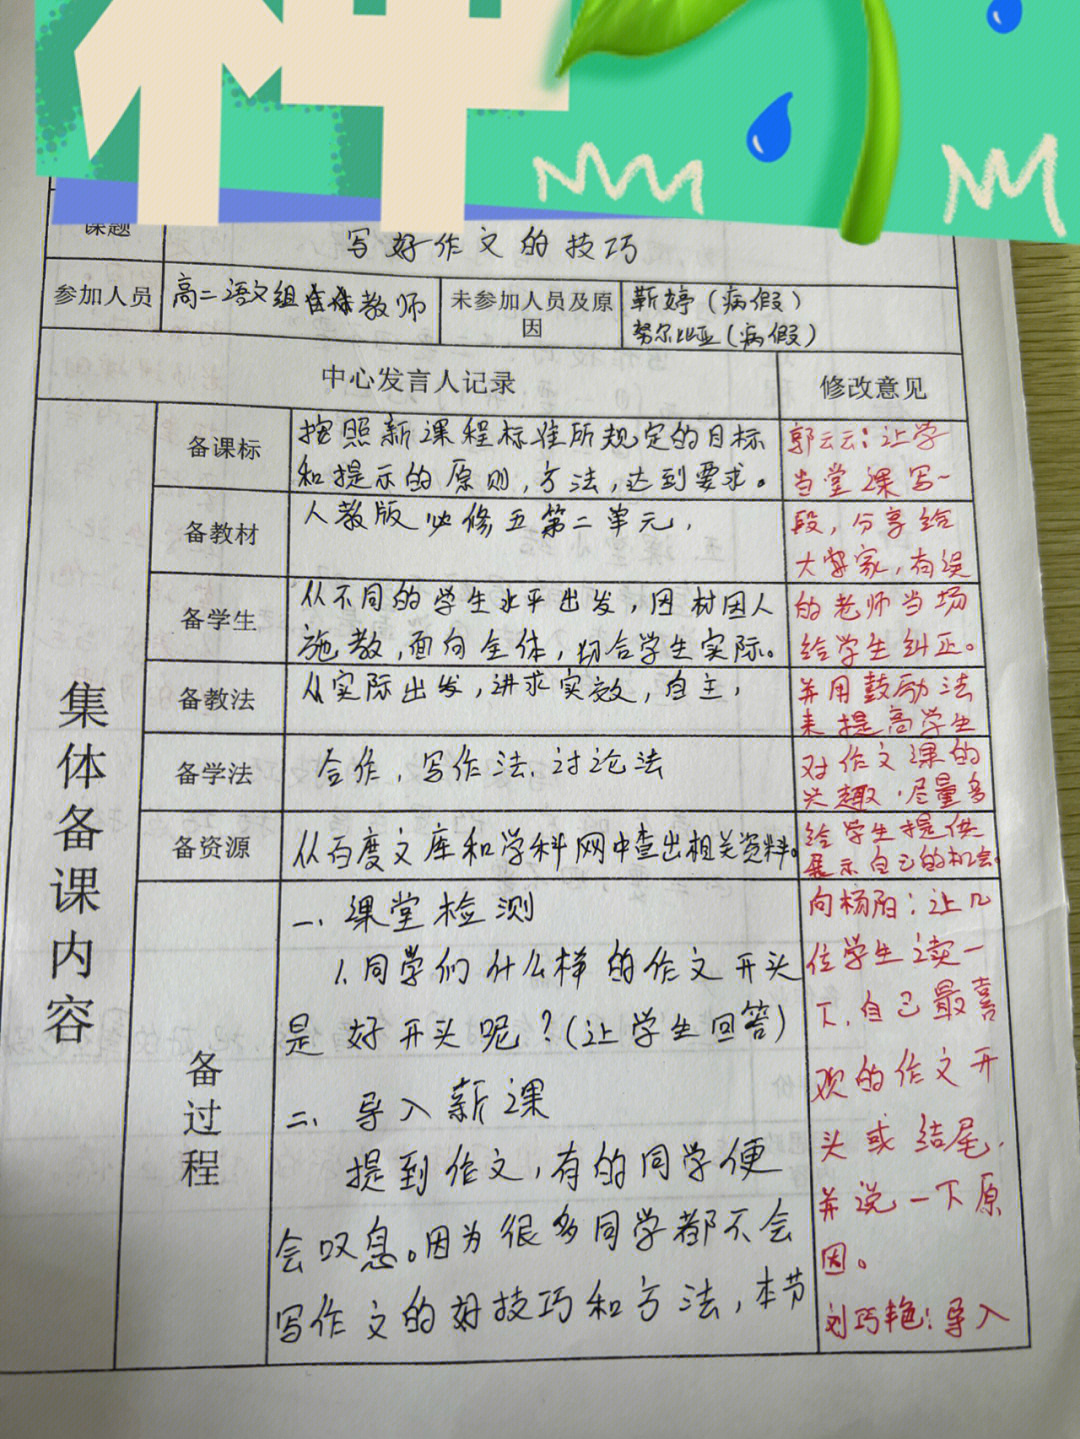 课题
写好作文的技巧
参加人员
高二语文组全体教师
未参加人员及原因
靳婷（病假）
努尔比亚（病假）
中心发言人记录
修改意见
集体备课内容
备课标
按照新课程标准所规定的目标
和提示的原则,方法,达到要求。
备教材
人教版必修五第二单元,
备学生
从不同的学生水平出发,因材因人
施教,面向全体,切合学生实际。
备教法
从实际出发,讲求实效,自主,
备学法
合作,写作法,讨论法
备资源
从百度文库和学科网中查出相关资料。
备过程
一、课堂检测
1.同学们什么样的作文开头
是好开头呢?(让学生回答)
二、导入新课
提到作文,有的同学便
会叹息。因为很多同学都不会
写作文的好技巧和方法,本节
郭云云:让学
当堂课写一
段,分享给
大家,有误
的老师当场
给学生纠正。
并用鼓励法
来提高学生
对作文课的
兴趣,尽量多
给学生提供
展示自己的机会。
向杨阳:让几
位学生读一
下,自己最喜
欢的作文开
头或结尾,
并说一下原
因。
刘巧艳:导入